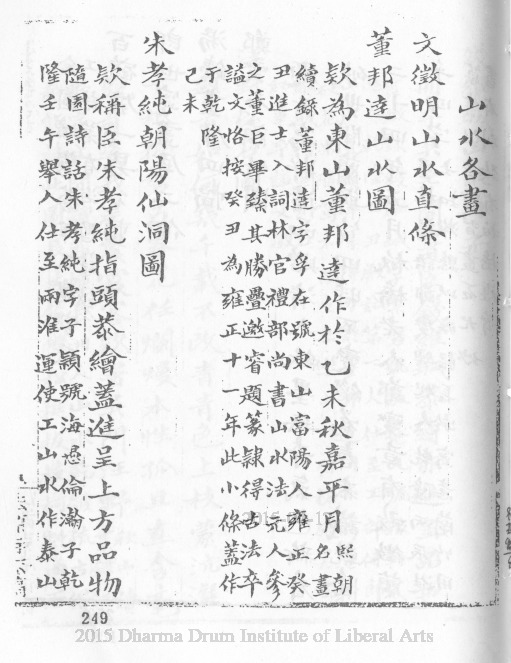 山水各畫
文徵明山水直條
董邦達山水圖
欵為東山董邦達作於乙未秋嘉平月熙朝
名畫
續錄董邦達字孚在號東山富陽人雍正癸
丑進士入詞林官禮部尚書山水法元人參
之董巨畢臻其勝疊邀睿題篆隸得古法卒
謚文恪按癸丑為雍正十一年此小條蓋作
于乾隆
己未
朱孝純朝陽仙洞圖
欵稱臣朱孝純指頭恭繪蓋進呈上方品物
隨園詩話朱孝純字子穎號海愚倫瀚子乾
隆壬午舉人仕至兩淮運使工山水作泰山
249
2015 Dharma Drum Institute of Liberal Arts